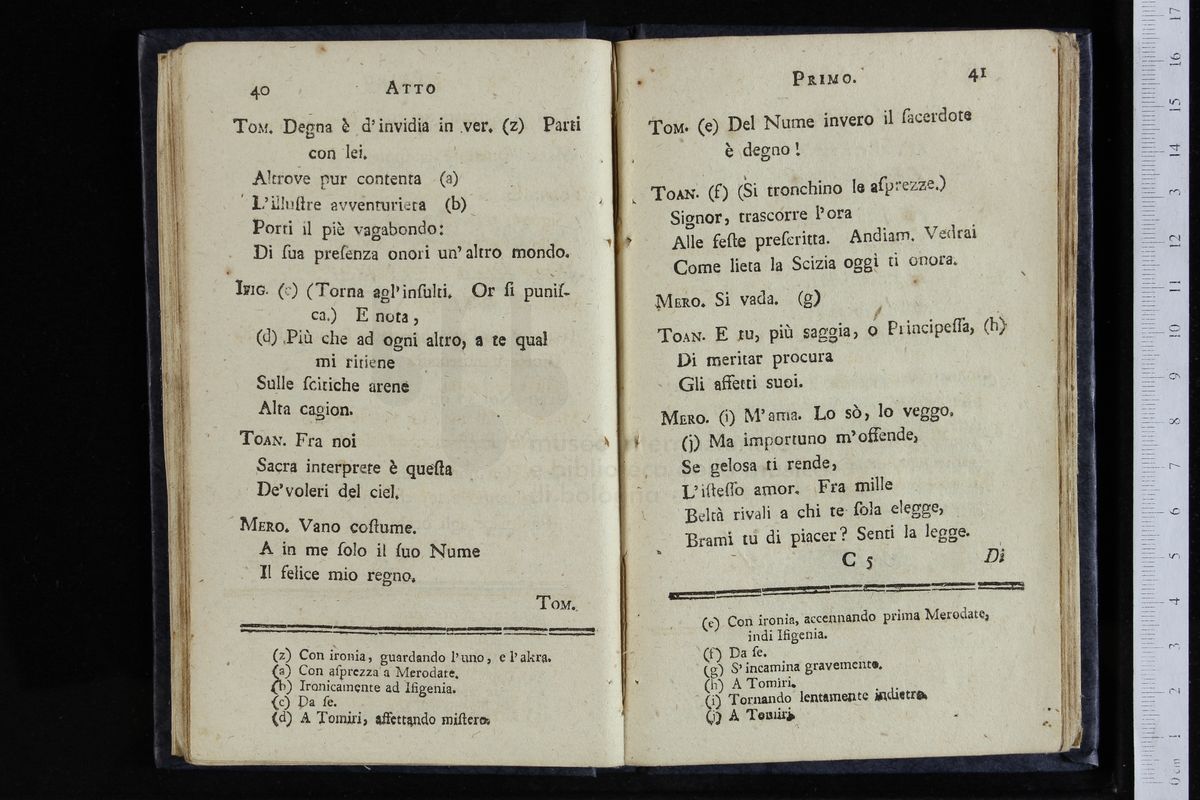 40 ATTO
TOM. Degna è d'invidia in ver. (z) Parti
con lei.
Altrove pur contenta (a)
L'illuſtre avventuriera (b)
Porti il piè vagabondo:
Di ſua preſenza onori un'altro mondo.
IFIG. (c) (Torna agl'inſulti. Or ſi puniſ-
ca.) E nota,
(d) Più che ad ogni altro, a te qual
mi ritiene
Sulle ſcitiche arene
Alta cagion.
TOAN. Fra noi
Sacra interprete è queſta
De'voleri del ciel.
MERO. Vano coſtume.
A in me ſolo il ſuo Nume
Il felice mio regno.
TOM.
(z) Con ironia, guardando l'uno, e l'altra.
(a) Con aſprezza a Merodate.
(b) Ironicamente ad Ifigenia.
(c) Da ſe.
(d) A Tomiri, affettando miſtero.
PRIMO. 41
TOM. (e) Del Nume invero il ſacerdote
è degno!
TOAN. (f) (Si tronchino le aſprezze.)
Signor, traſcorre l'ora
Alle feſte preſcritta. Andiam. Vedrai
Come lieta la Scizia oggi ti onora.
MERO. Si vada. (g)
TOAN. E tu, più saggia, o Principeſſa, (h)
Di meritar procura
Gli affetti suoi.
MERO. (i) M'ama. Lo sò, lo veggo.
(j) Ma importuno m'offende,
Se geloſa ti rende,
L'iſteſſo amor. Fra mille
Beltà rivali a chi te ſola elegge,
Brami tu di piacer? Senti la legge.
C 5 Di
(e) Con ironia, accennando prima Merodate,
indi Ifigenia.
(f) Da ſe.
(g) S'incamina gravemente.
(h) A Tomiri.
(i) Tornando lentamente indietro.
(j) A Tomiri.